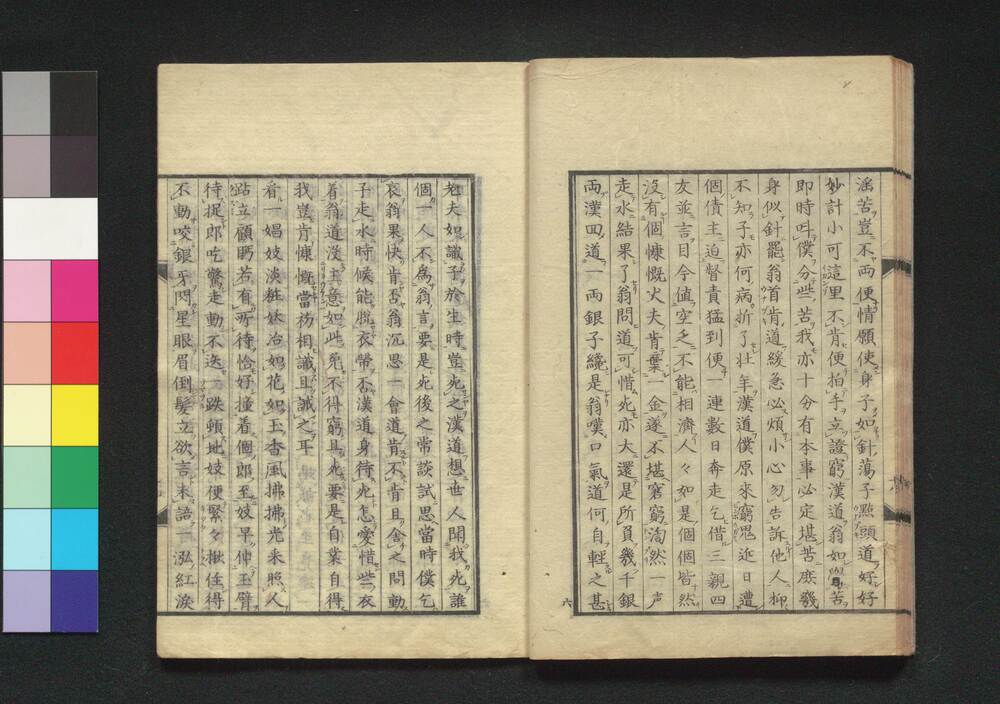 滛苦豈不両便情願使身子如針蕩子㸃頭道好好
妙計小可這里不肯便拍手立證窮漢道翁如學苦
即時呌僕分些苦我亦十分有本事必定堪苦庶幾
身似針罷翁首肯道緩急必煩小心勿告訴他人抑
不知子亦何病折了壮年漢道僕原來窮鬼近日遭
個債主迫督責猛到便一連數日奔走乞借三親四
友並言目今値空乏不能相濟人々如是個個皆然
没有個慷慨丈夫肯棄一金遂不堪窘窮溘然一声
走水結果了翁問道可惜死亦大還是所負幾千銀
両漢四道一両銀子纔是翁嘆口氣道何自輕之甚
六
老夫如識子於生時豈死之漢道想世人聞我死誰
個一人不為翁言要是死後之常談試思當時僕乞
哀翁果快肯否翁沉思一會道肯不肯且舍之問動
子走水時候能脱衣帶否漢道身待死怎愛惜些衣
着翁道没主意如此免不得窮且死要是自業自得
我豈肯慷慨當初相識且誡之耳
看一娼妓淡粧妖冶如花如玉香風拂拂光釆照人
跕立顧眄若有所待恰好撞着個郎至妓早伸玉臂
待捉郎吃驚走動不迭一跌頓地妓便緊々揪住得
不動咬銀牙閃星眼眉倒髪立欲言未語一泓紅淚